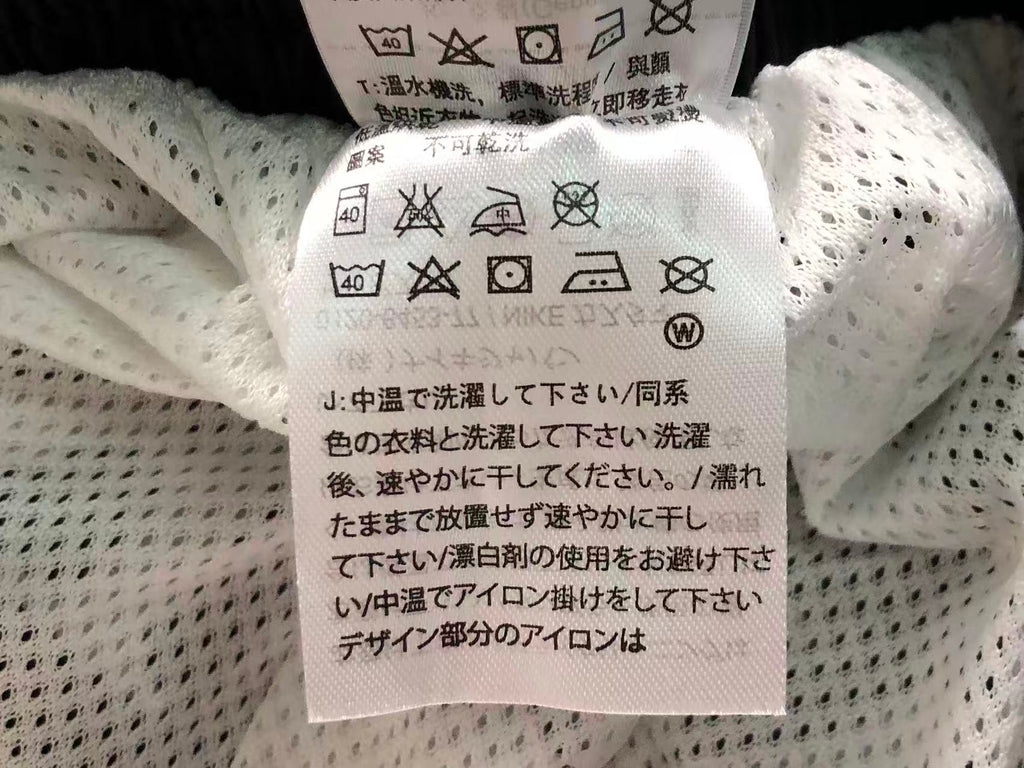 40
T:溫水機洗，標準洗程/與顏
色相近衣物
即移走衣
圖案 不可乾洗
40 中
40
W
0120-6453-77 / NIKE カスタマ
(株)ナイキジャパン
J:中温で洗濯して下さい/同系
色の衣料と洗濯して下さい 洗濯
後、速やかに干してください。/ 濡れ
たままで放置せず速やかに干し
て下さい/漂白剤の使用をお避け下さ
い/中温でアイロン掛けをして下さい
デザイン部分のアイロンは